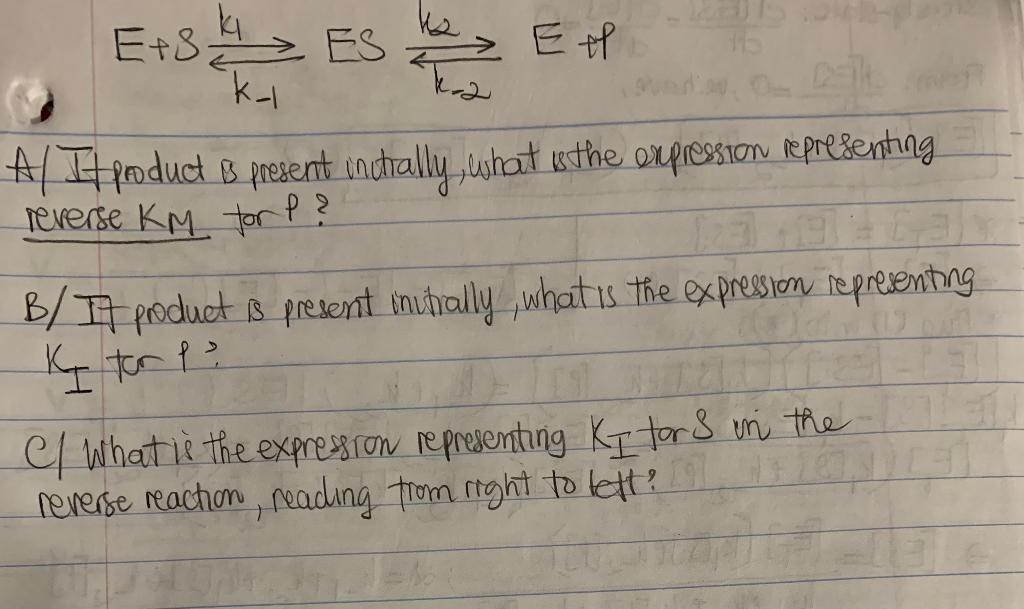 E+S ⇌ ES ⇌ E+P
k1 k2
k-1 k-2
A/ If product is present initially, what is the expression representing
reverse KM for P?
B/ If product is present initially, what is the expression representing
KI for P?
C/ What is the expression representing KI for S in the
reverse reaction, reading from right to left?